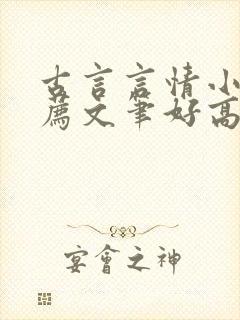 古言言情小
薦文筆好高
宴會之神